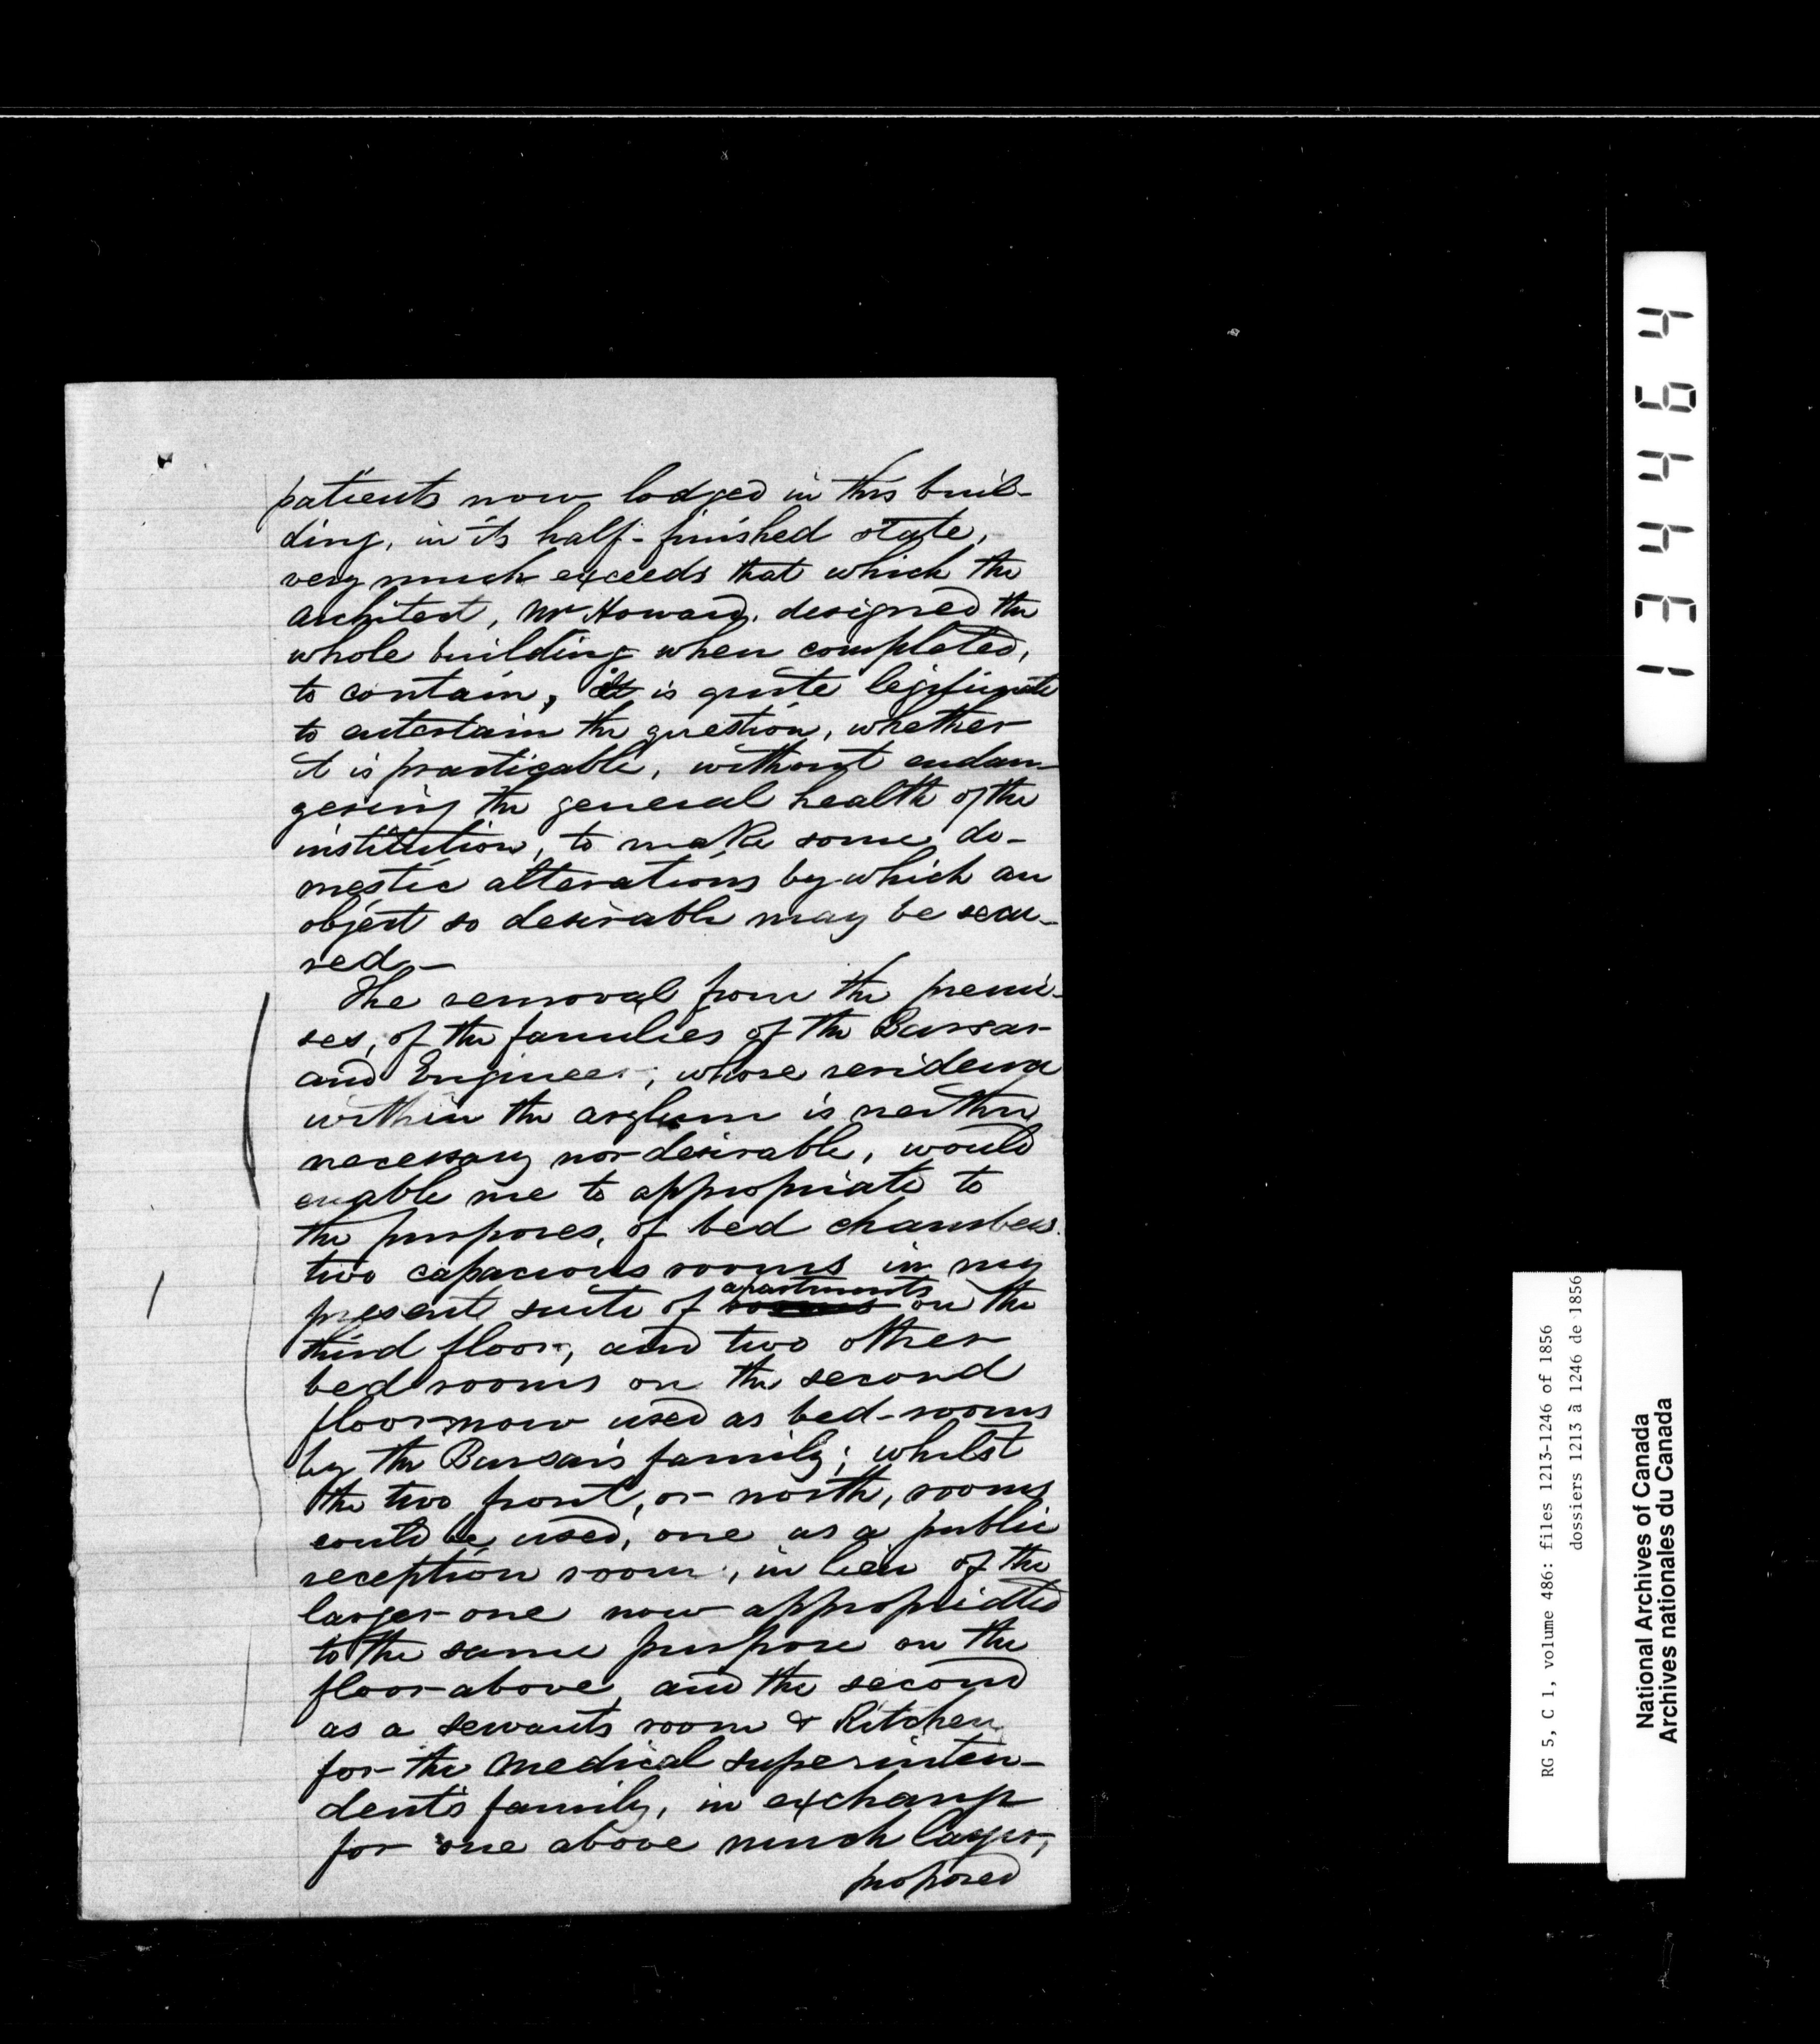 patients now lodged in this buil-
ding, in its half-finished state,
very much exceeds that which the
architect, Mr Howard, designed the
whole building when completed,
to contain, it is quite legitimate
to entertain the question, whether
it is practicable, without endan-
gering the general health of the
institution, to make some do-
mestic alterations by which an
object so desirable may be secu-
red.—
The removal from the premi-
ses, of the families of the Bursar
and Engineer, whose residence
within the asylum is neither
necessary nor desirable, would
enable me to appropriate to
the purposes, of bed chambers
two capacious rooms in my
apartments
present suite of rooms on the
third floor, and two other
bed rooms on the second
floor now used as bed-rooms
by the Bursar's family; whilst
the two front, or north, rooms
could be used, one as a public
reception room, in lieu of the
larger one now appropriated
to the same purpose on the
floor above, and the second
as a servants room & Kitchen
for the Medical superinten-
dent's family, in exchange
for one above much larger,
proposed
134464
RG 5, C 1, volume 486: files 1213-1246 of 1856
dossiers 1213 à 1246 de 1856
National Archives of Canada
Archives nationales du Canada